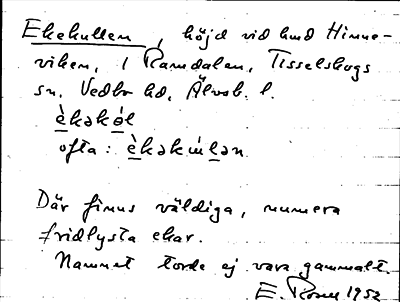 Ekekullen, höjd vid hmd Hinne-
viken, i Ramdalen, Tisselskogs
sn, Vedbo hd, Älvsb. l.
èkəkól
ofta: èkəkulən
Där finns väldiga, numera
fridlysta ekar.
Namnet torde ej vara gammalt.
E. 1952